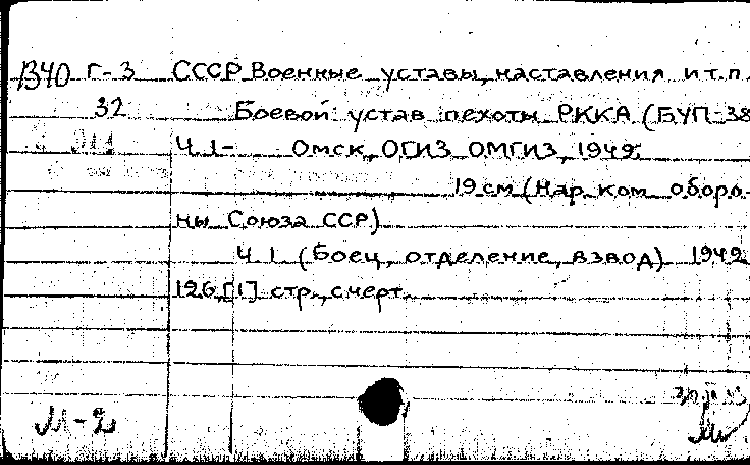 В40 Г-3 СССР Военные уставы, наставления и т.п.
32 Боевой устав пехоты РККА (БУП-38
Ч. 1- Омск, ОГИЗ ОМГИЗ, 1942.
19 см (Нар. ком оборо-
ны Союза ССР)
Ч. 1 (Боец, отделение, взвод) 1942
126, [1] стр., с черт.
М-2